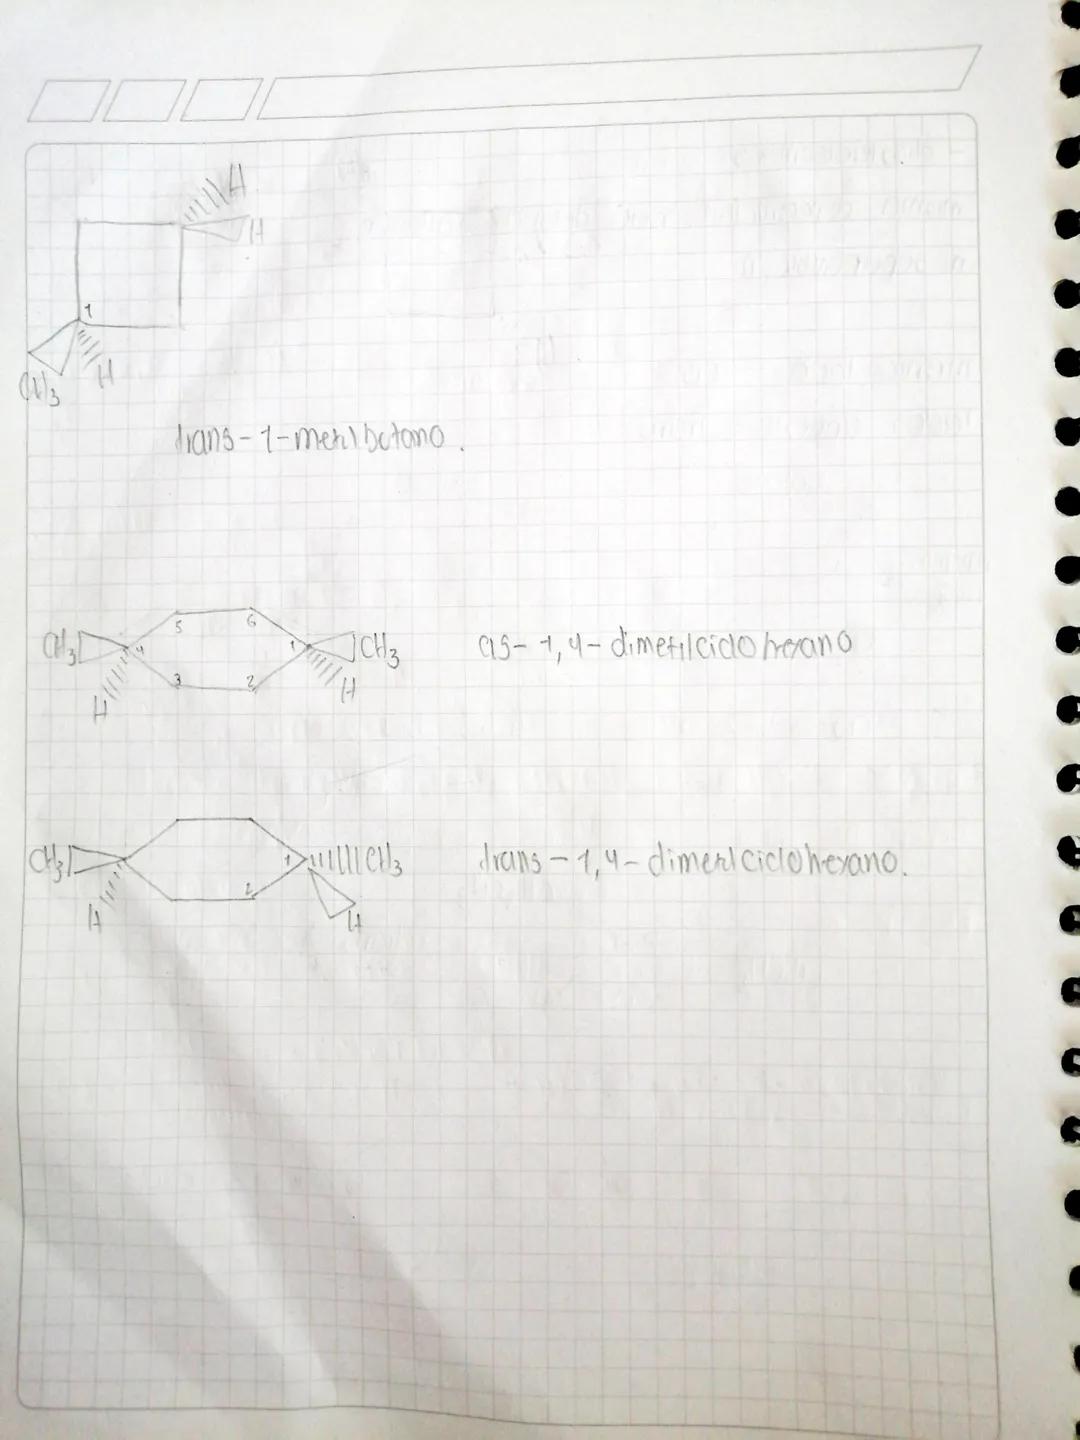 H
H
1
CH3
H
trans-1-metilbutano.
5 6
CH3 4 1 CH3 cis-1,4-dimetilciclohexano
3 2
H H
CH3 1 CH3 trans-1,4-dimetilciclohexano.
2
H H